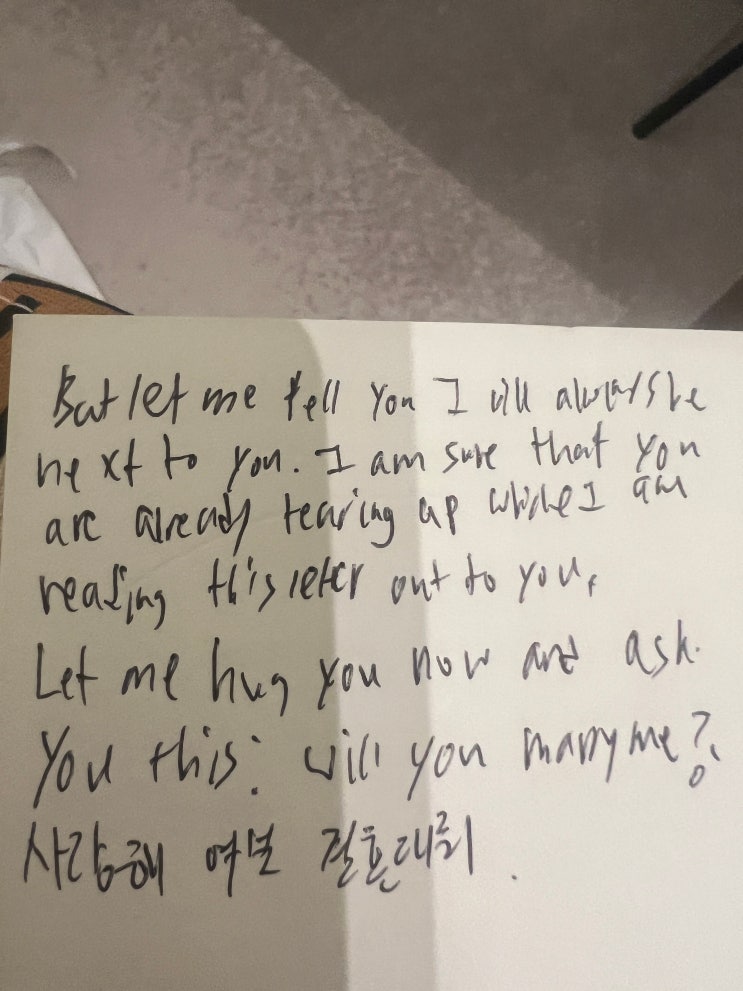 But let me tell you I will always be
next to you. I am sure that you
are already tearing up while I am
reading this letter out to you,
Let me hug you now and ask
you this: will you marry me?
사랑해 여보